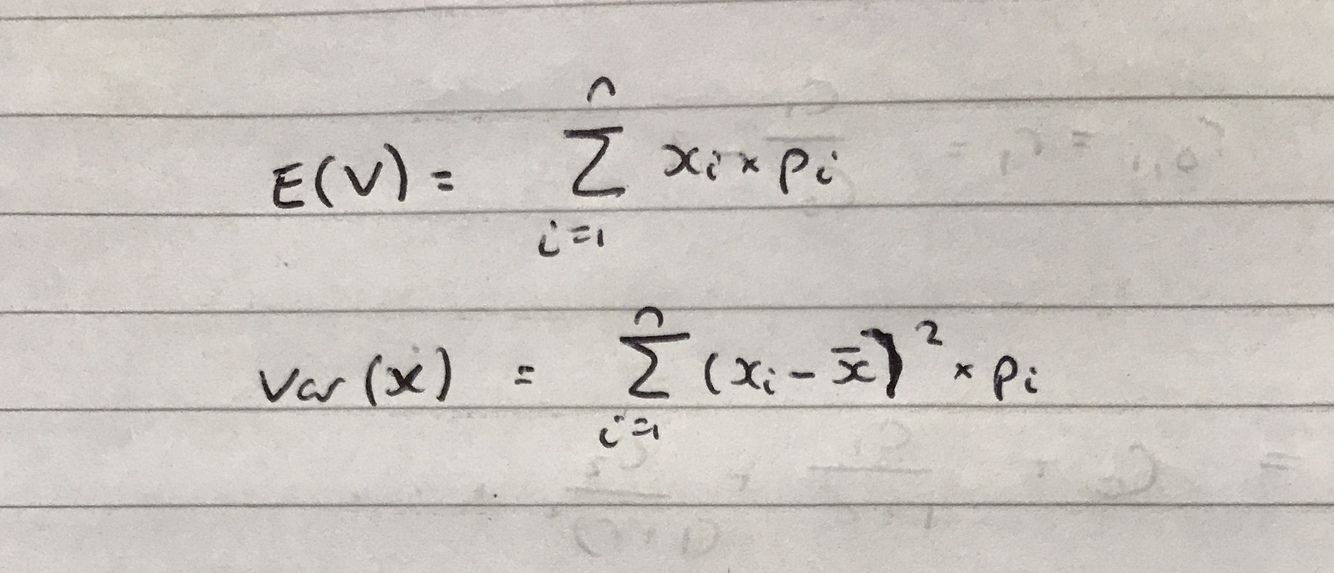 E(V) = n∑i=1 xi × pi
Var(x) = n∑i=1 (xi - x̄)² × pi